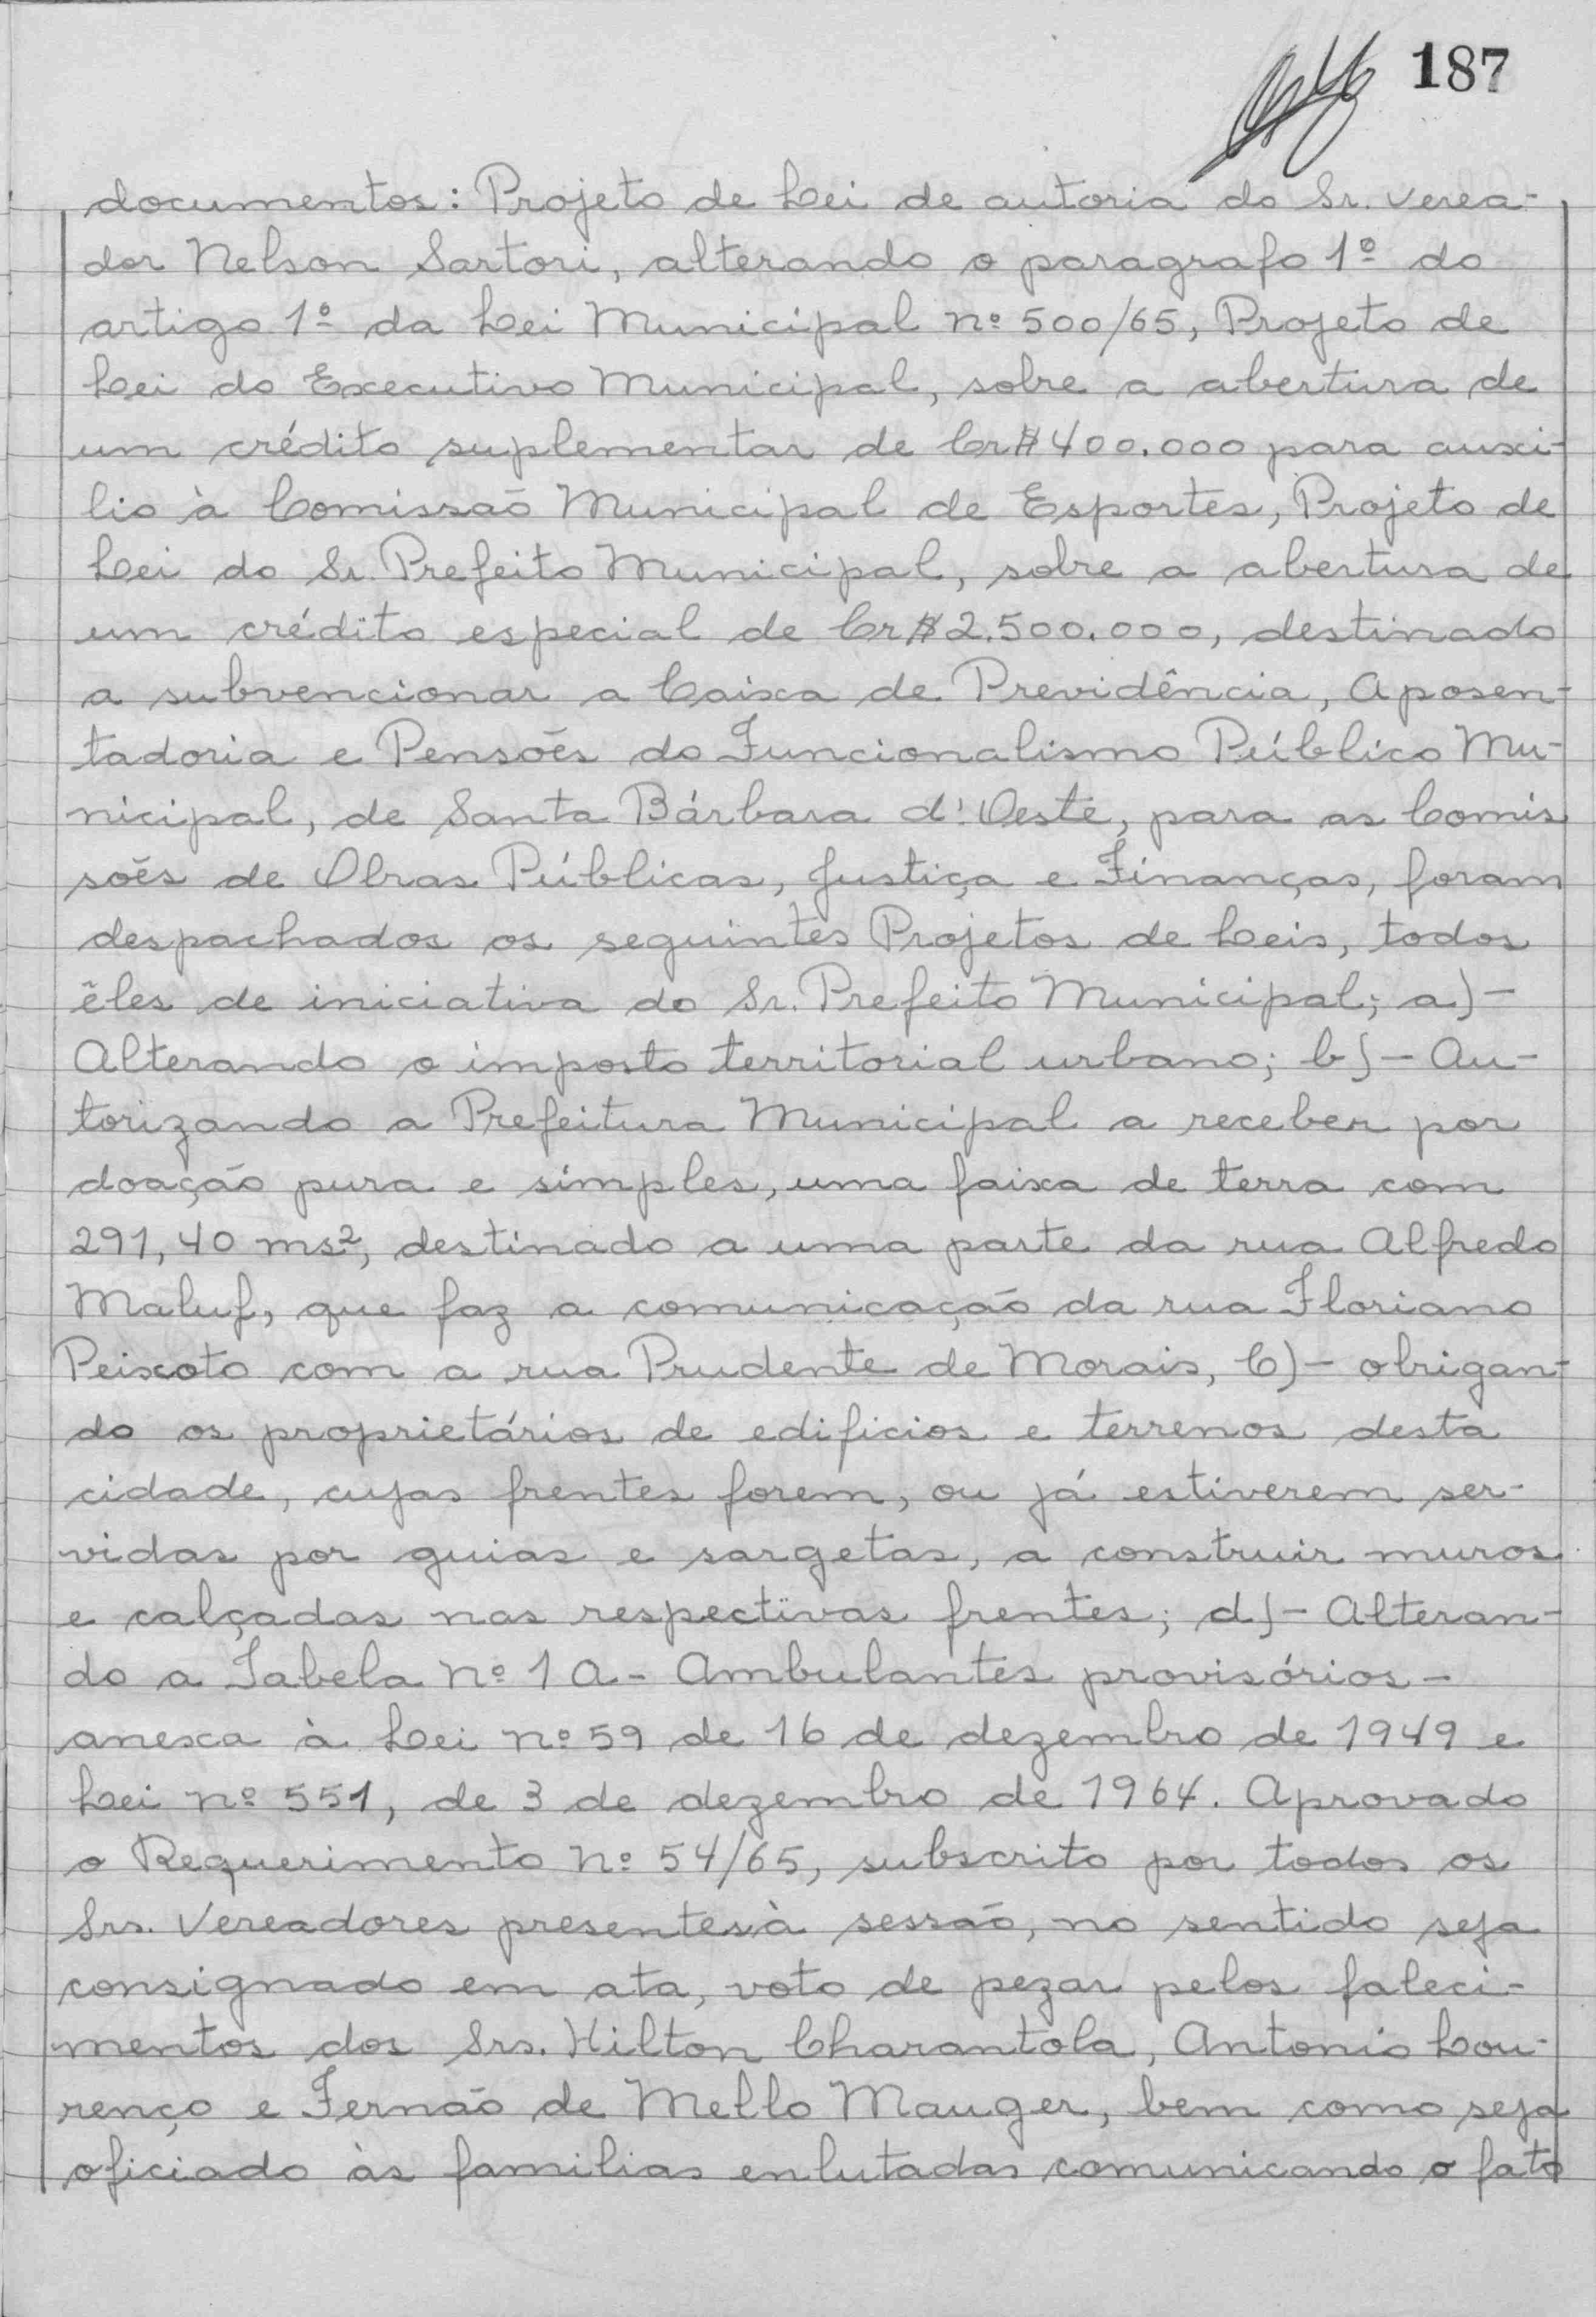 187
documentos: Projeto de Lei de autoria do Sr. verea-
dor Nelson Sartori, alterando o paragrafo 1º do
artigo 1º da Lei Municipal nº 500/65, Projeto de
Lei do Executivo Municipal, sobre a abertura de
um crédito suplementar de Cr$400.000 para auxi-
lio à Comissão Municipal de Esportes, Projeto de
Lei do Sr. Prefeito Municipal, sobre a abertura de
um crédito especial de Cr$2.500.000, destinado
a subvencionar a Caixa de Previdência, Aposen-
tadoria e Pensões do Funcionalismo Público Mu-
nicipal, de Santa Bárbara d'Oeste, para as Comis
sões de Obras Públicas, Justiça e Finanças, foram
despachados os seguintes Projetos de Leis, todos
êles de iniciativa do Sr. Prefeito Municipal; a)-
Alterando o imposto territorial urbano; b)- Au-
torizando a Prefeitura Municipal a receber por
doação pura e simples, uma faixa de terra com
291,40 ms², destinado a uma parte da rua Alfredo
Maluf, que faz a comunicação da rua Floriano
Peixoto com a rua Prudente de Morais, C)- obrigan-
do os proprietários de edificios e terrenos desta
cidade, cujas frentes forem, ou já estiverem ser-
vidas por guias e sargetas, a construir muros
e calçadas nas respectivas frentes; d)- Alteran-
do a Tabela nº 1 A - Ambulantes provisórios -
anexa à Lei nº 59 de 16 de dezembro de 1949 e
Lei nº 551, de 3 de dezembro de 1964. Aprovado
o Requerimento nº 54/65, subscrito por todos os
Srs. Vereadores presentes à sessão, no sentido seja
consignado em ata, voto de pezar pelos faleci-
mentos dos Srs. Hilton Charantola, Antonio Lou-
renço e Fernão de Mello Mauger, bem como seja
oficiado às familias enlutadas comunicando o fato